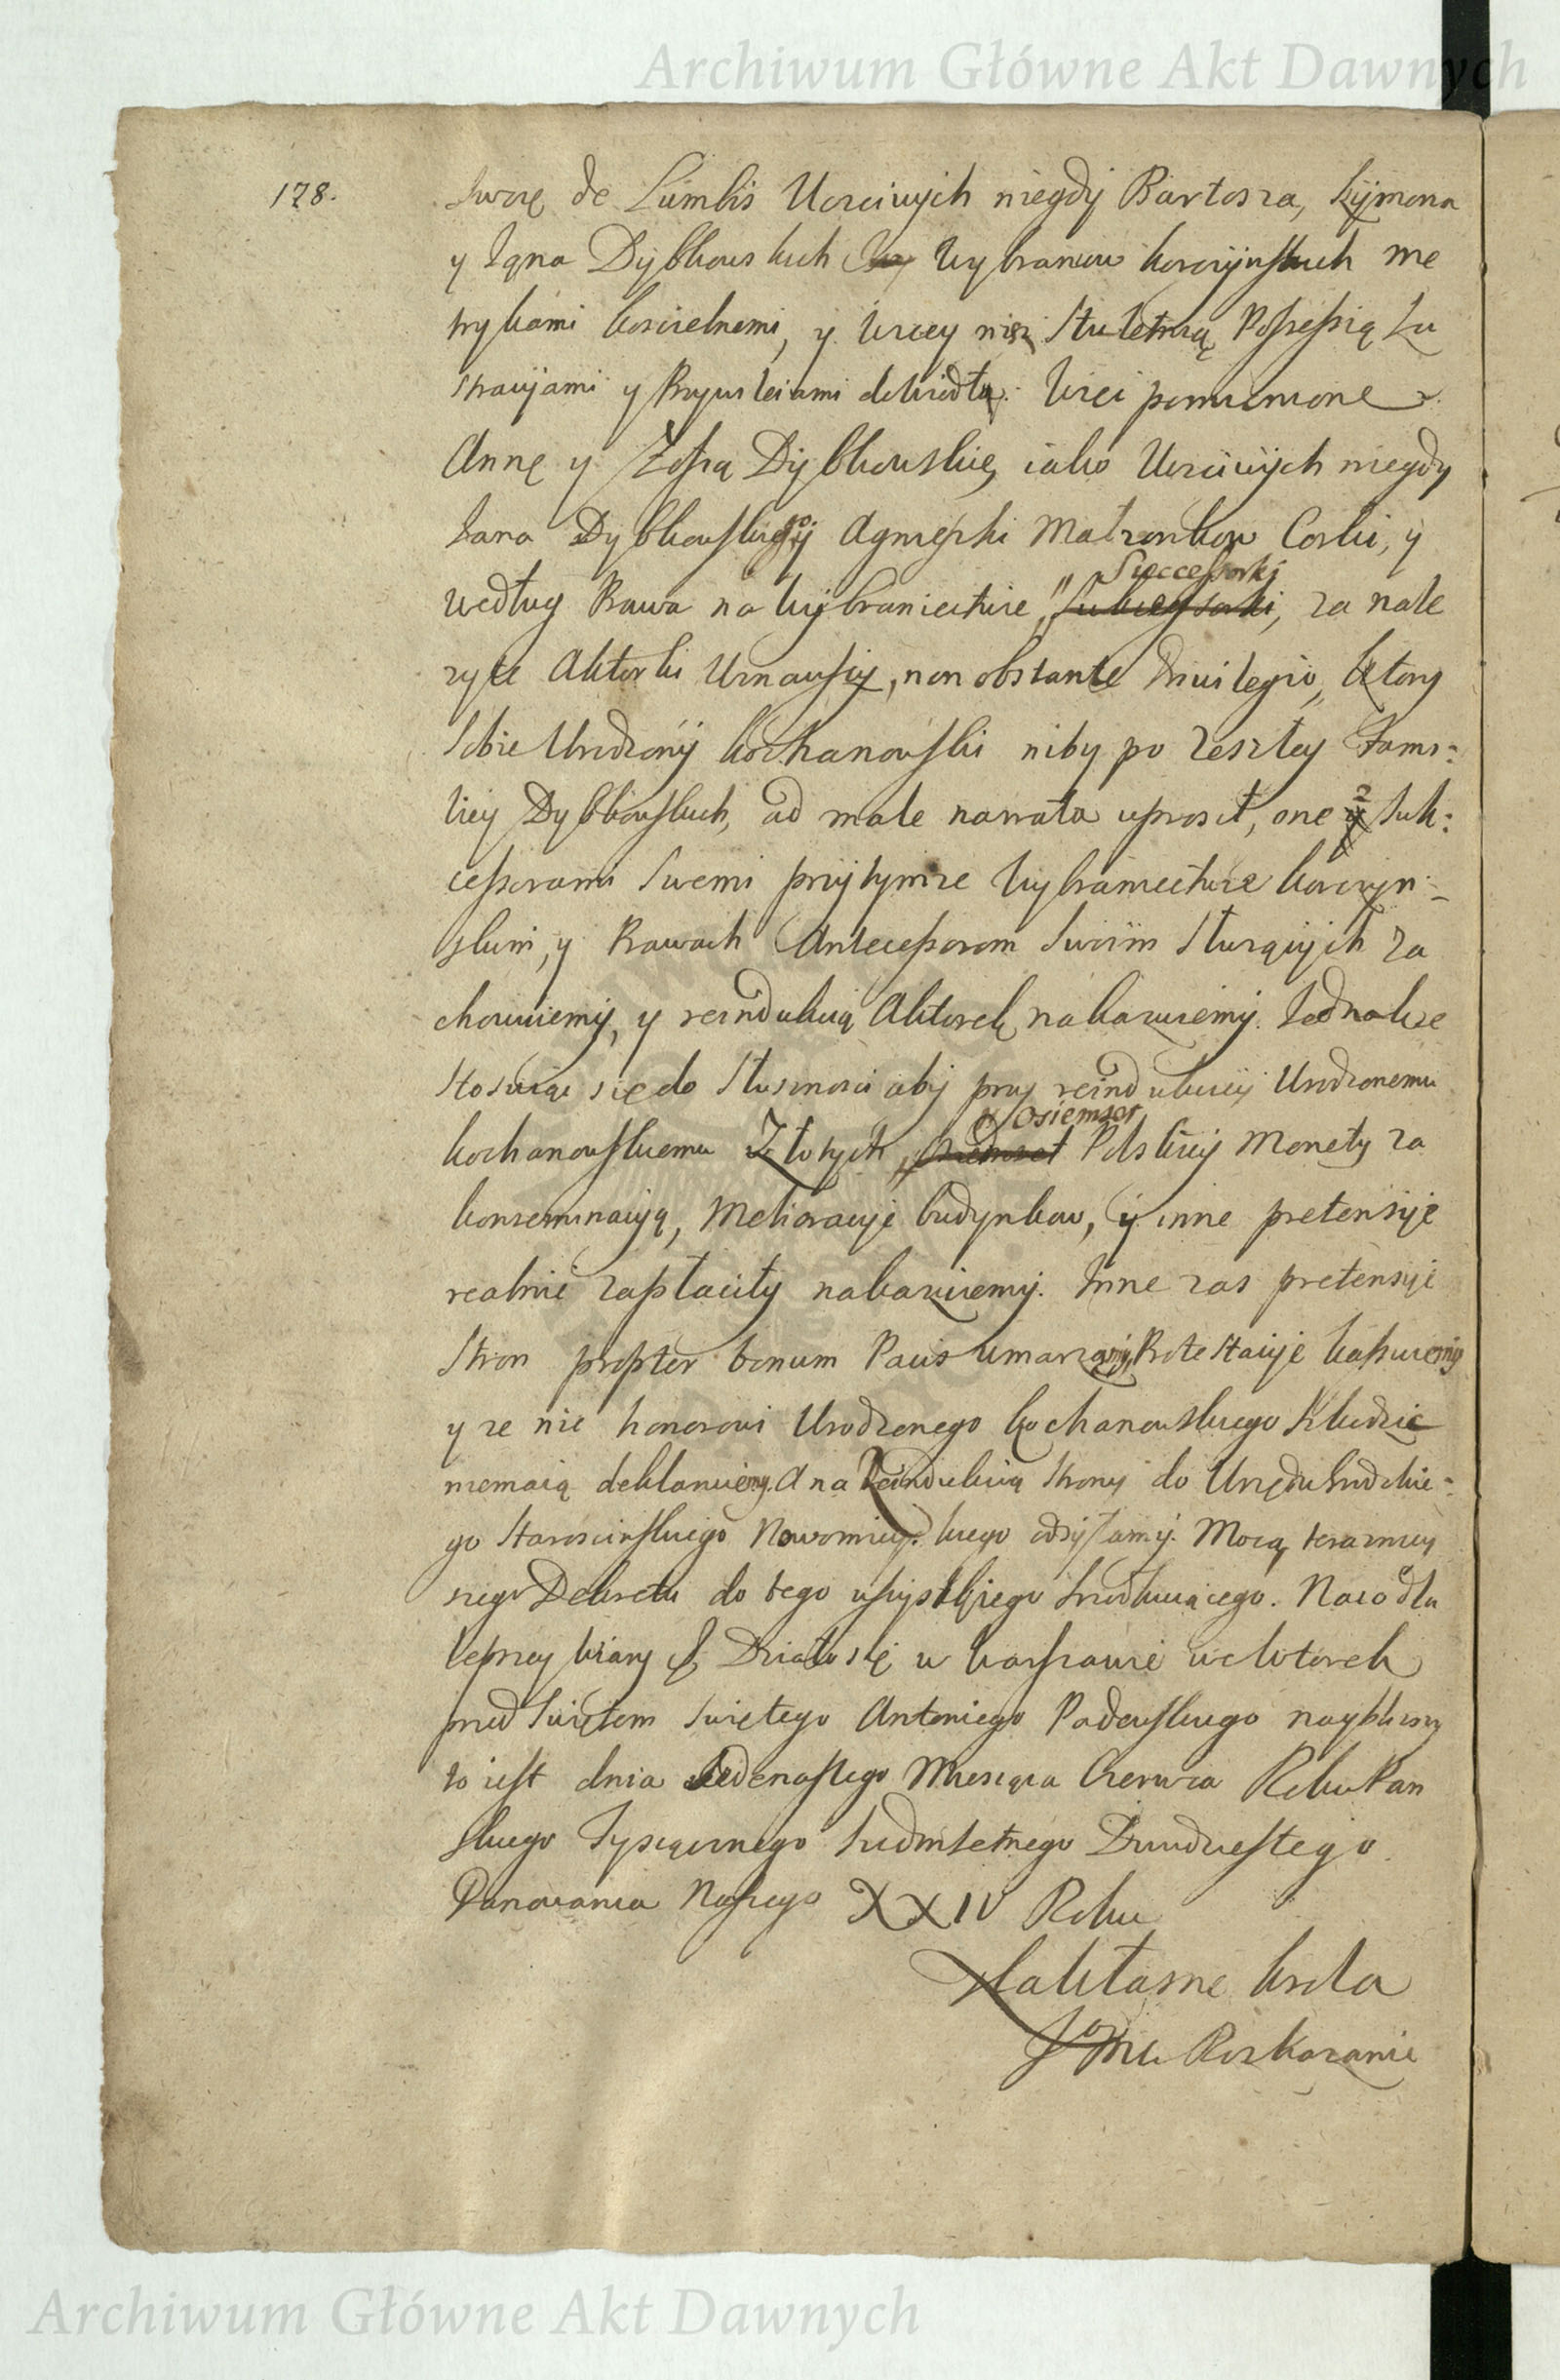 Archiwum Główne Akt Dawnych
178.
swoię de Lumbis Uczciwych niegdy Bartosza, Szymona
y Jana Dybkowskich Wybrancow korczynskich me
trykami koscielnemi, y wiecey niz Stuletnią Possessią Lu
stracyiami y Przywileiami dowiodła. Więc pomienione
Annę y Zofią Dybkowskie, iako Uczciwych niegdy
Jana Dybkowskiego y Agnieszki Małzonkow Corki, y
według Prawa na Wybraniectwie Successorki, za nale
zyte Aktorki Uznawszy, non obstante Privilegio, ktory
Sobie Urodzony Kochanowski niby po Zeszłey Fami-
liey Dybkowskich, ad male narrata uprosił, one z Suk-
cessorami Swemi przy tymze Wybraniectwie korczyn-
skim, y Prawach Antecessorom Swoim Słuzących za
chowuiemy, y reindukcią Aktorek nakazuiemy. Jednakze
stosuiąc się do Słusznosci aby przy reindukciy Urodzonemu
Kochanowskiemu Złotych Osiemset Polskiey Monety za
konseminacyą, Melioracyie budynkow, y inne pretensyie
realnie zapłaciły nakazuiemy. Inne zas pretensyie
Stron propter bonum Pacis umarzamy, Protestacyie kassuiemy
y ze nic honorowi Urodzonego Kochanowskiego szkodzic
niemaią deklaruiemy. A na Reindukcią Strony do Urzędu Grodzkie-
go Staroscinskiego Nowomieyskiego odsyłamy. Mocą terazniey
szego Dekretu do tego wszystkiego Srzodkuiącego. Na co dla
lepszey Wiary &c. Działo się w Warszawie we Wtorek
przed Swiętem Swiętego Antoniego Padewskiego nayblizszy
to iest dnia Jedenastego Miesiąca Czerwca Roku Pan
skiego Tysiącznego Siedmsetnego Dwudziestego
Panowania Naszego XXIV Roku
Na Własne Krola
JoMci Rozkazanie
Archiwum Główne Akt Dawnych